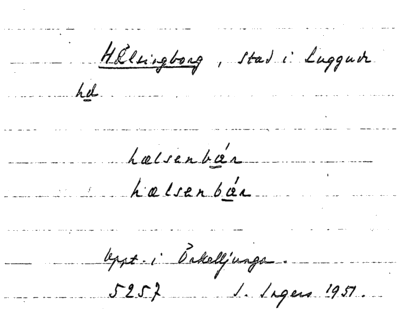 Hälsingborg, stad i Luggude
hd
hælsenbær
hælsenbær
Uppt. i Örkelljunga.
5257 I. Ingers 1951.